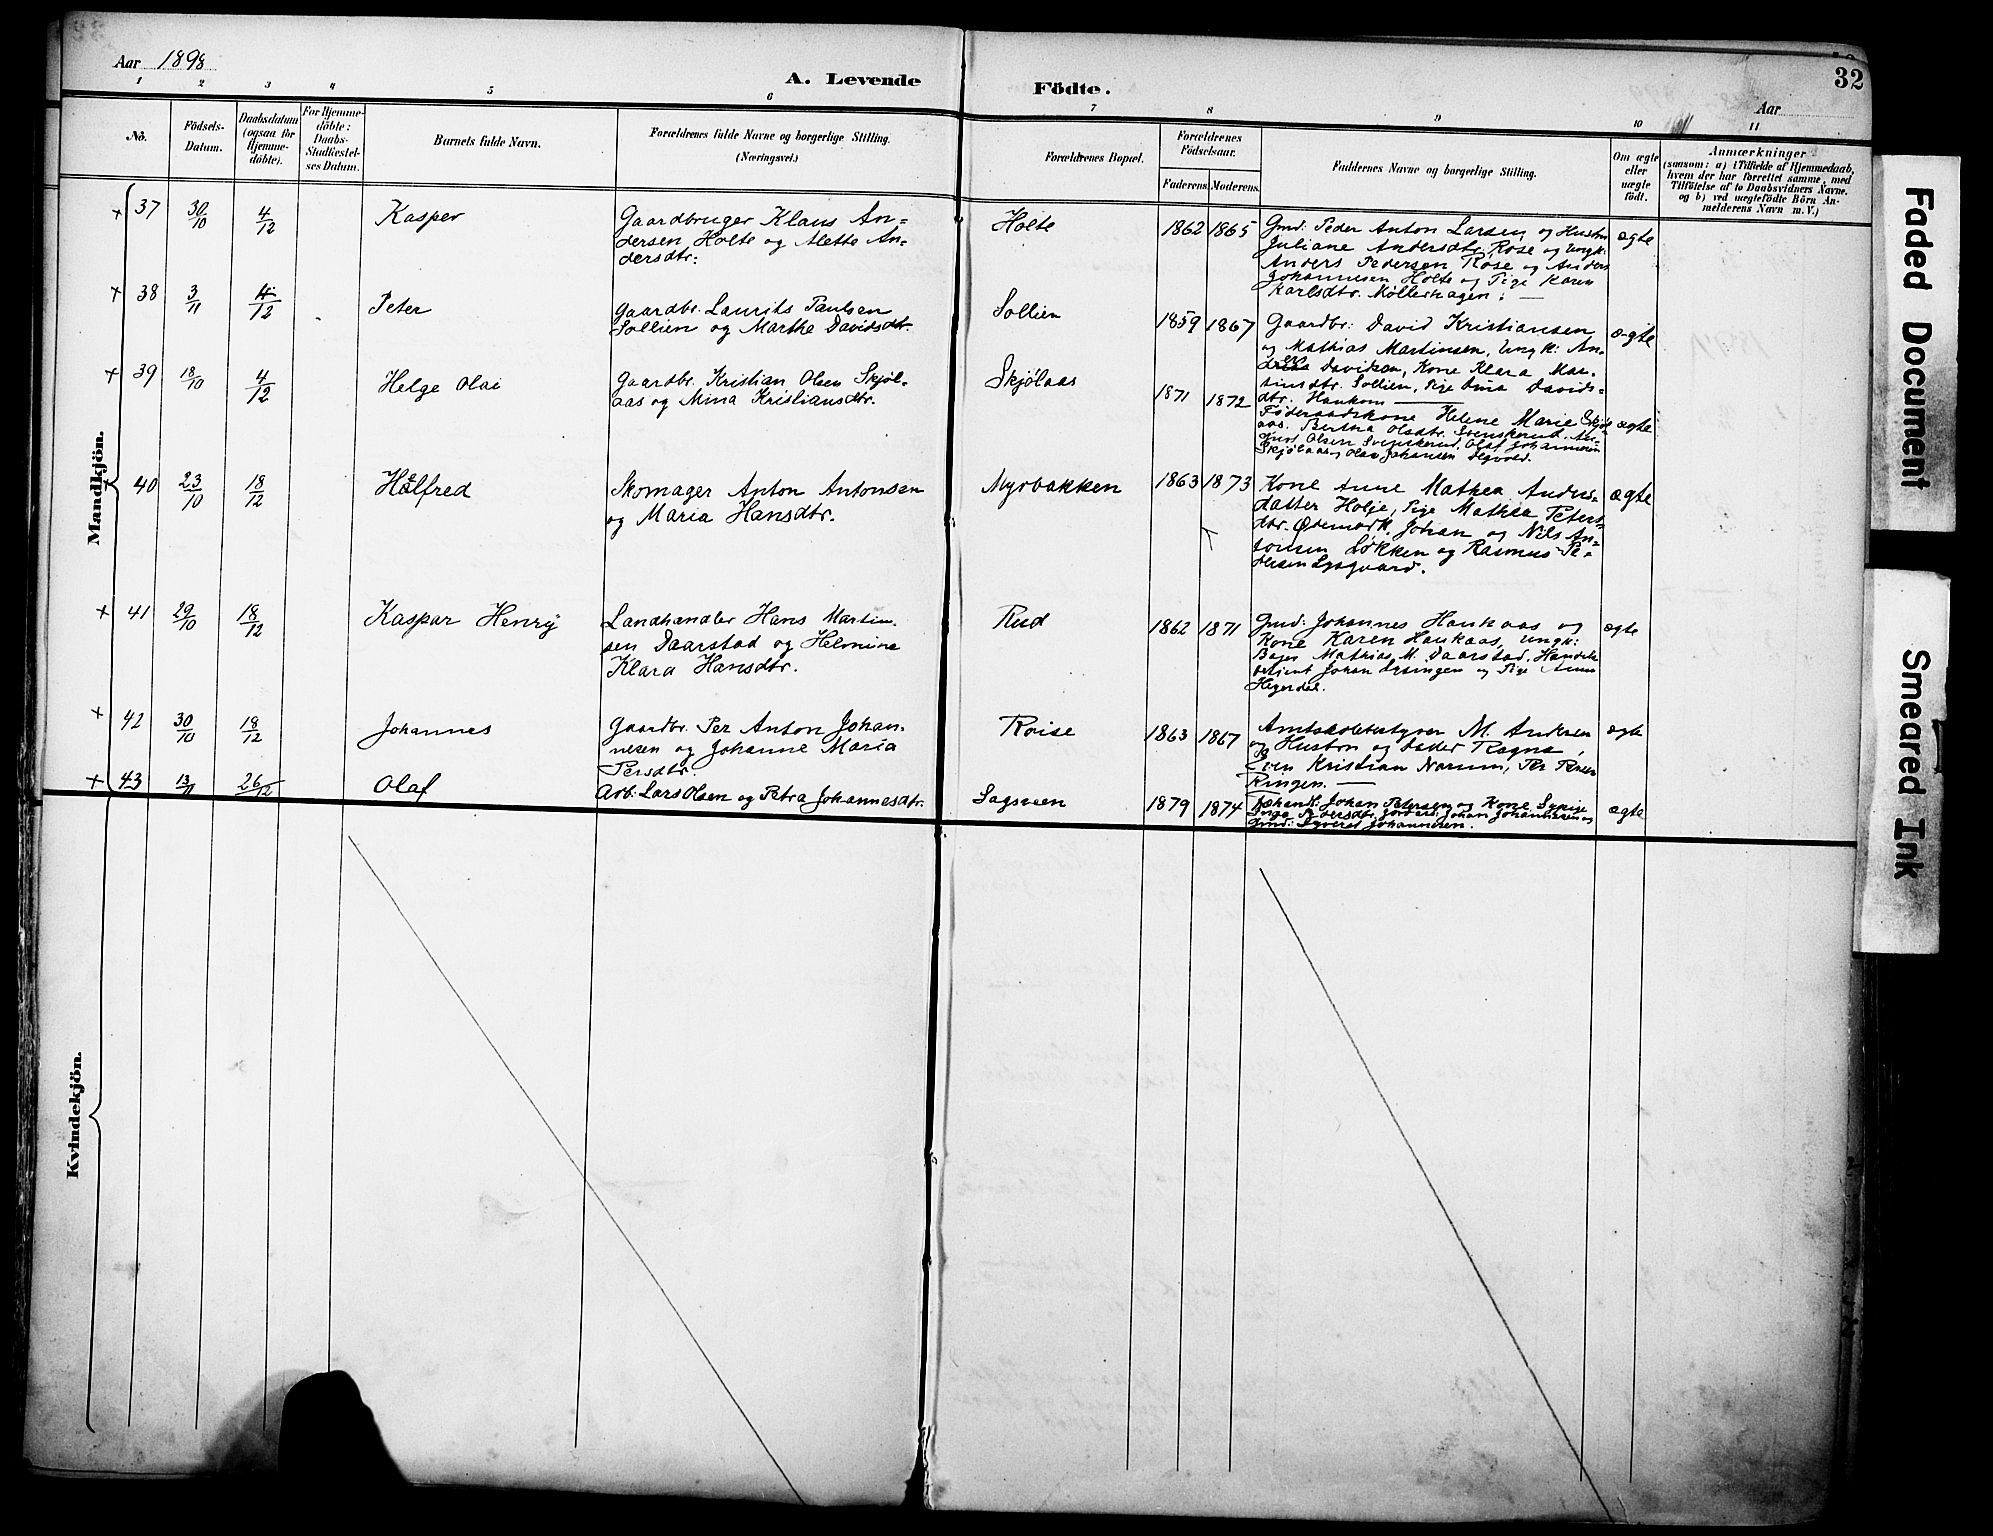 Aar 1898
A. Levende
Födte.
32
Aar
1 2 3 4 5 6 7 8 9 10 11
No.
Födsels-
Datum.
Daabsdatum
(ogsaa for
Hjemme-
döbte).
For Hjemme-
döbte:
Daabs-
Stadfæstel-
ses Datum.
Barnets fulde Navn.
Forældrenes fulde Navne og borgerlige Stilling.
(Næringsvei.)
Forældrenes Bopæl.
Forældrenes
Födselsaar.
Faderens. Moderens.
Faddernes Navne og borgerlige Stilling.
Om ægte
eller
uægte
födt.
Anmærkninger
(saasom: a) i Tilfælde af Hjemmedaab,
hvem der har forrettet samme, med
Tilföielse af to Daabsvidners Navne.
og b) ved uægtefödte Börn An-
melderens Navn m. V.)
Mandkjön.
+ 37 30/10 4/12 Kasper
Gaardbruger Klaus An-
dersen, Holte og Alette An-
dersdtr:
Holte 1862 1865
Gmd: Peder Anton Larsen og Hustru
Juliane Andersdtr. Rose og Ungk:
Anders Pedersen Rose og Anders
Johannesen Holte og Pige Karen
Karlsdtr. Møllerhagen: —
ægte
+ 38 3/11 4/12 Peter
Gaardbr. Laurits Paulsen
Sollien og Marthe Davidsdtr.
Sollien 1859 1867
Gaardbr: David Kristiansen
og Mathias Martinsen, Ungk: An-
dreas Davidsen, Kone Klara Mar-
tinsdtr. Sollien, Pige Davids-
dtr. Haukom
ægte
+ 39 18/10 4/12 Helge Olai
Gaardbr. Kristian Olsen Skjøl-
aas og Mina Kristiansdtr.
Skjølaas 1871 1872
Føderaadskone Helene Marie Skjøl-
aas, Bertha Olsdtr. Svenskerud,
Olsen Svenskerud, Olaf Johannesen
Skjølaas, Johansen
ægte
+ 40 23/10 18/12 Hålfred
Skomager Anton Antonsen
og Maria Hansdtr.
Myrbakken 1863 1873
Kone Anne Mathea Anders-
datter Holje, Pige Mathea Peters-
dtr. Østmork, Johan og Nils An-
tonsen Løkken og Rasmus Pe-
dersen Lysgaard.
ægte
+ 41 29/10 18/12 Kaspar Henry
Landhandler Hans Martin-
sen Daarstad og Helmine
Klara Hansdtr.
Rud 1862 1871
Gmd: Johannes Haukaas og
Kone Karen Haukaas, Ungk:
Mathias M. Daarstad, Handels-
betjent Johan og Pige Anna
ægte
+ 42 30/10 18/12 Johannes
Gaardbr. Per Anton Johan-
nesen og Johanne Maria
Persdtr.
Roise 1863 1867
M.
og Hustru og Ragna,
Even Kristian Norum, Per
Ringen.
ægte
+ 43 13/11 26/12 Olaf
Arb: Lars Olsen og Petra Johannesdtr.
Sagveen 1879 1874
Johan Petersen og Kone
Johan Johannesen og
Gmd: Syver Johannesen.
ægte
Kvindekjön.
Faded Document
Smeared Ink